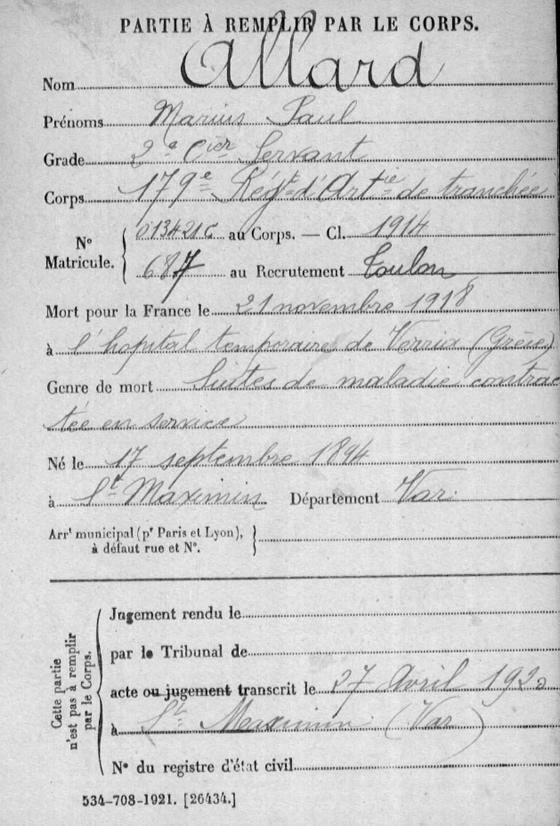 PARTIE À REMPLIR PAR LE CORPS.
Nom Allard
Prénoms Marius Paul
Grade 2e Cier Servant
Corps 179e Régt d'Artie de tranchée
N° Matricule. 013421C au Corps. — Cl. 1914
687 au Recrutement Toulon
Mort pour la France le 21 novembre 1918
à l'hopital temporaire de Verria (Grèce)
Genre de mort Suites de maladie contrac
tée en service
Né le 17 septembre 1894
à St Maximin Département Var
Arrt municipal (pr Paris et Lyon),
à défaut rue et N°.
Cette partie
n'est pas à remplir
par le Corps.
Jugement rendu le
par le Tribunal de
acte ou jugement transcrit le 27 Avril
à St Maximin (Var)
N° du registre d'état civil
534-708-1921. [26434.]